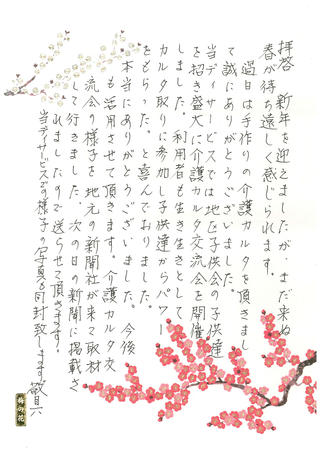 拝啓 新年を迎えましたが、まだ来ぬ
春が待ち遠しく感じられます。
過日は手作りの介護カルタを頂きまし
て誠にありがとうございました。
当デイサービスでは地区子供会の子供達
を招き盛大に介護カルタ交流会を開催
しました。利用者も生き生きとして
カルタ取りに参加し子供達からパワー
をもらった。と喜んでおりました。
本当にありがとうございました。今後
も活用させて頂きます。介護カルタ交
流会の様子を地元の新聞社が来て取材
して行きました。次の日の新聞に掲載さ
れましたので送らせて頂きます。
当デイサービスでの様子の写真も同封致します。敬具